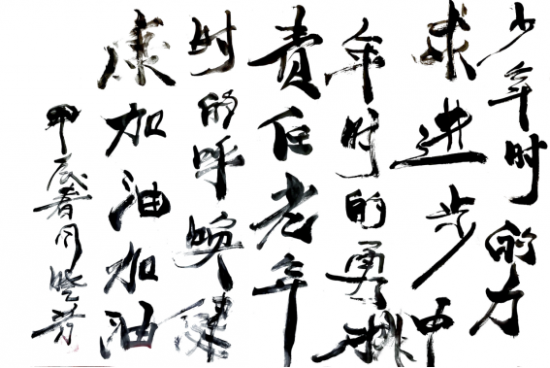 少年时的力
求进步中
年时的勇挑
责任老年
时的呼唤健
康加油加油
甲辰春晓芳